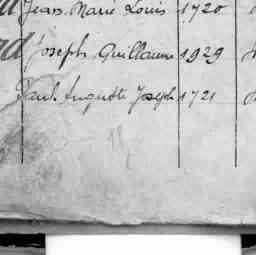 Jean Marie Louis 1720
Joseph Guillaume 1929
Paul Auguste Joseph 1721